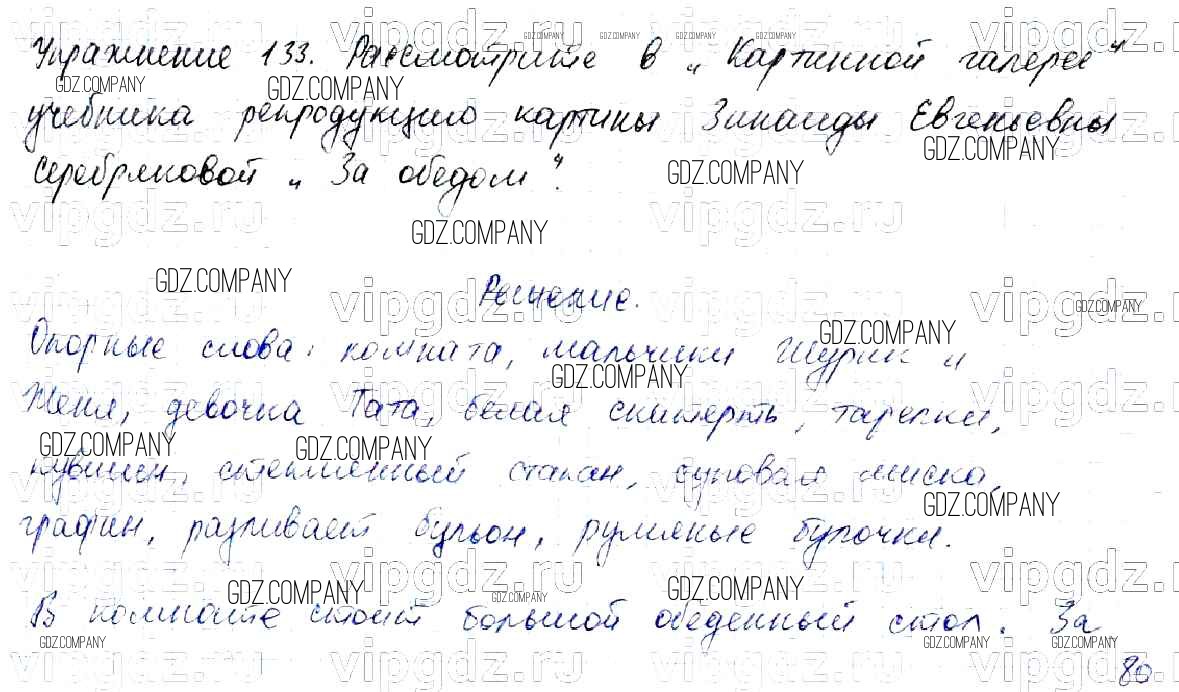 Упражнение 133. Рассмотрите в „Картинной галерее"
учебника репродукцию картины Зинаиды Евгеньевны
Серебряковой „За обедом".
Решение.
Опорные слова: комната, мальчики Шурик и
Женя, девочка Тата, белая скатерть, тарелки,
кувшин, стеклянный стакан, суповая миска,
графин, разливает бульон, румяные булочки.
В комнате стоит большой обеденный стол. За
80